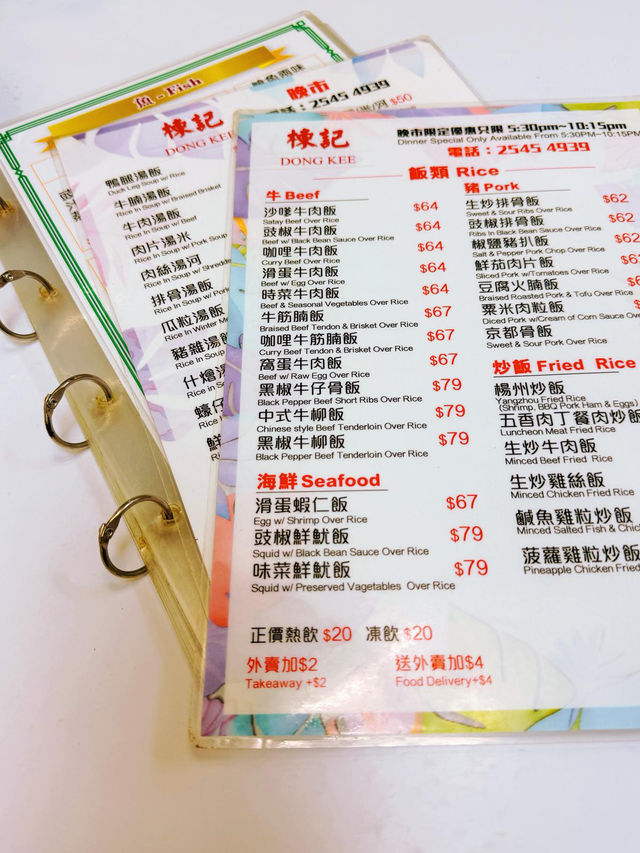 魚 - Fish
晚市
電話：2545 4939
$50
棟記
DONG KEE
鴨腿湯飯
Duck Leg Soup w/ Rice
牛腩湯飯
Rice In Soup w/ Braised Brisket
牛肉湯飯
Rice In Soup w/ Beef
肉片湯米
Rice In Soup w/ Pork Soup
肉絲湯河
Rice In Soup w/
排骨湯飯
Rice In Soup w/
瓜粒湯飯
Rice In Winter
豬雜湯
Rice In Soup
什燴湯
Rice In S
蠔仔
Rice In
鮮
棟記
DONG KEE
晚市限定優惠只限 5:30pm~10:15pm
Dinner Special Only Available From 5:30PM~10:15PM
電話：2545 4939
飯類 Rice
牛 Beef
沙嗲牛肉飯 $64
Satay Beef Over Rice
豉椒牛肉飯 $64
Beef w/ Black Bean Sauce Over Rice
咖哩牛肉飯 $64
Curry Beef Over Rice
滑蛋牛肉飯 $64
Beef w/ Egg Over Rice
時菜牛肉飯 $64
Beef & Seasonal Vegetables Over Rice
牛筋腩飯 $67
Braised Beef Tendon & Brisket Over Rice
咖哩牛筋腩飯 $67
Curry Beef Tendon & Brisket Over Rice
窩蛋牛肉飯 $67
Beef w/ Raw Egg Over Rice
黑椒牛仔骨飯 $79
Black Pepper Beef Short Ribs Over Rice
中式牛柳飯 $79
Chinese style Beef Tenderloin Over Rice
黑椒牛柳飯 $79
Black Pepper Beef Tenderloin Over Rice
海鮮 Seafood
滑蛋蝦仁飯 $67
Egg w/ Shrimp Over Rice
豉椒鮮魷飯 $79
Squid w/ Black Bean Sauce Over Rice
味菜鮮魷飯 $79
Squid w/ Preserved Vagetables Over Rice
豬 Pork
生炒排骨飯 $62
Sweet & Sour Ribs Over Rice
豉椒排骨飯 $62
Ribs In Black Bean Sauce Over Rice
椒鹽豬扒飯 $62
Salt & Pepper Pork Chop Over Rice
鮮茄肉片飯
Sliced Pork w/Tomatoes Over Rice
豆腐火腩飯
Braised Roasted Pork & Tofu Over Rice
粟米肉粒飯
Diced Pork w/Cream of Corn Sauce
京都骨飯
Sweet & Sour Pork Over Rice
炒飯 Fried Rice
楊州炒飯
Yangzhou Fried Rice
(Shrimp, BBQ Pork Ham & Eggs)
五香肉丁餐肉炒飯
Luncheon Meat Fried Rice
生炒牛肉飯
Minced Beef Fried Rice
生炒雞絲飯
Minced Chicken Fried Rice
鹹魚雞粒炒飯
Minced Salted Fish &
菠蘿雞粒炒飯
Pineapple Chicken
正價熱飲 $20 凍飲 $20
外賣加$2 送外賣加$4
Takeaway +$2 Food Delivery+$4